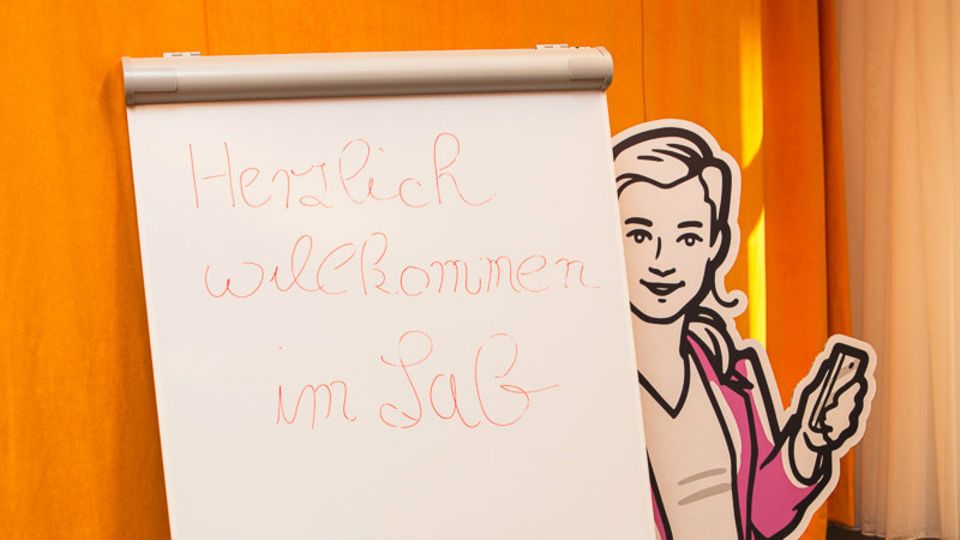 Herzlich
willkommen
im Lab